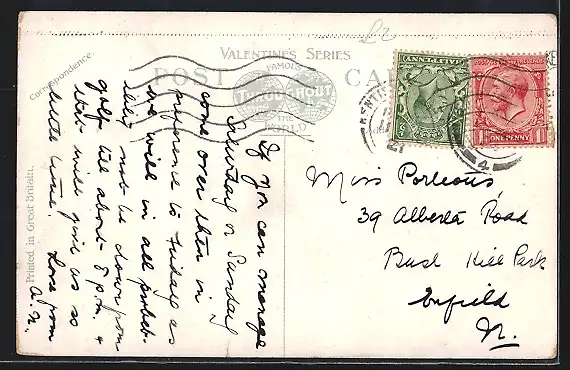 £2
VALENTINE'S SERIES
FAMOUS
THROUGHOUT
THE
WORLD
POST CARD
Correspondence.
Printed in Great Britain.
HALFPENNY
ONE PENNY
21
4
If you can manage
Saturday or Sunday
come over then in
preference to Friday as
we will in all probab-
ility not be down from
golf till about 8 p.m. &
that will give us so
little time. Love from
A.N.
Miss Porteous
39 Alberta Road
Bush Hill Park
Enfield
N.